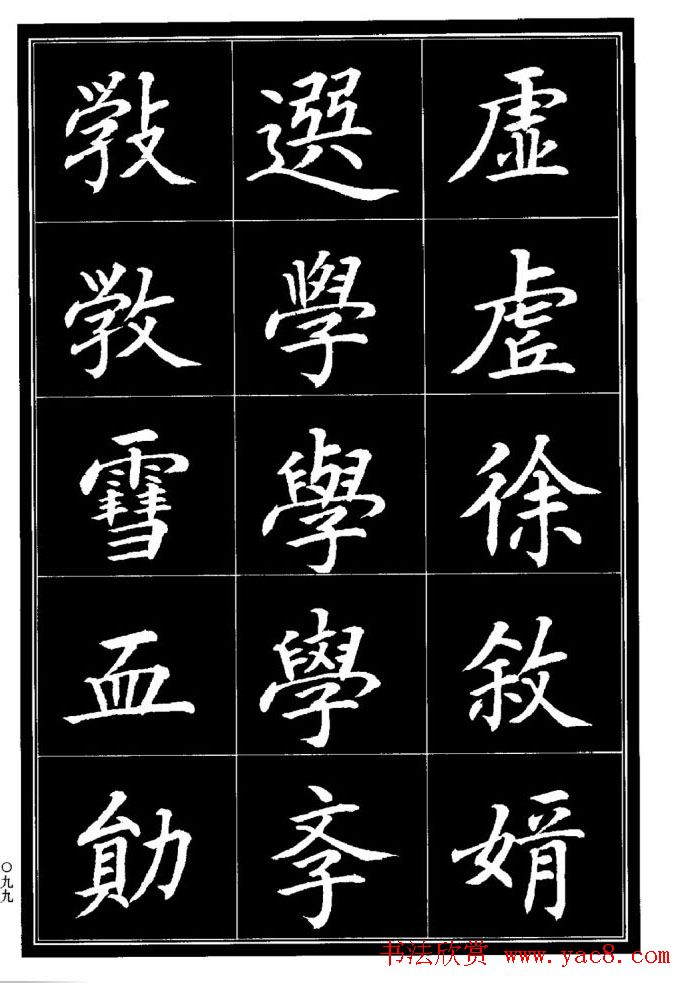 虚
虗
徐
敘
婿
選
學
學
學
斈
敩
敩
䨮
血
勛
〇九九
书法欣赏 www.yac8.com